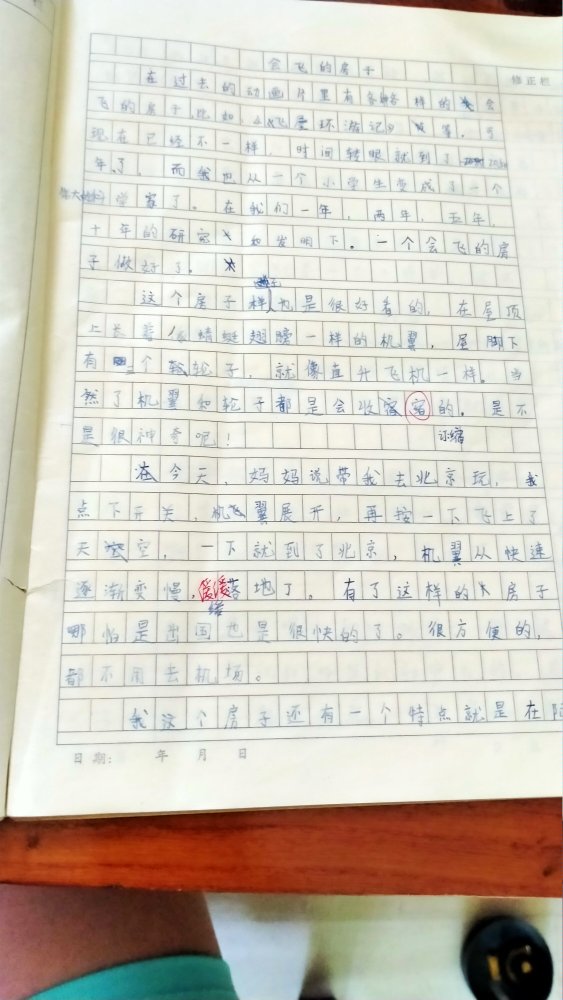 会飞的房子
修正栏
在过去的动画片里有各种各样的会
飞的房子,比如《飞屋环游记》等。可
现在已经不一样,时间转眼就到了
年了。而我也从一个小学生变成了一个
学家了。在我们一年,两年,五年,
十年的研究和发明下。一个会飞的房
子做好了。
这个房子样子也是很好看的,在屋顶
上长着像蜻蜓翅膀一样的机翼,屋脚下
有三个轮子,就像直升飞机一样。当
然了机翼和轮子都是会收宿的。是不
缩
是很神奇呢!
在今天,妈妈说带我去北京玩,我
点下开关,机翼展开,再按一下飞上了
天空,一下就到了北京,机翼从快速
逐渐变慢,缓缓落地了。有了这样的房子
缓
哪怕是出国也是很快的了。很方便的,
都不用去机场。
我这个房子还有一个特点就是在
日期: 年 月 日